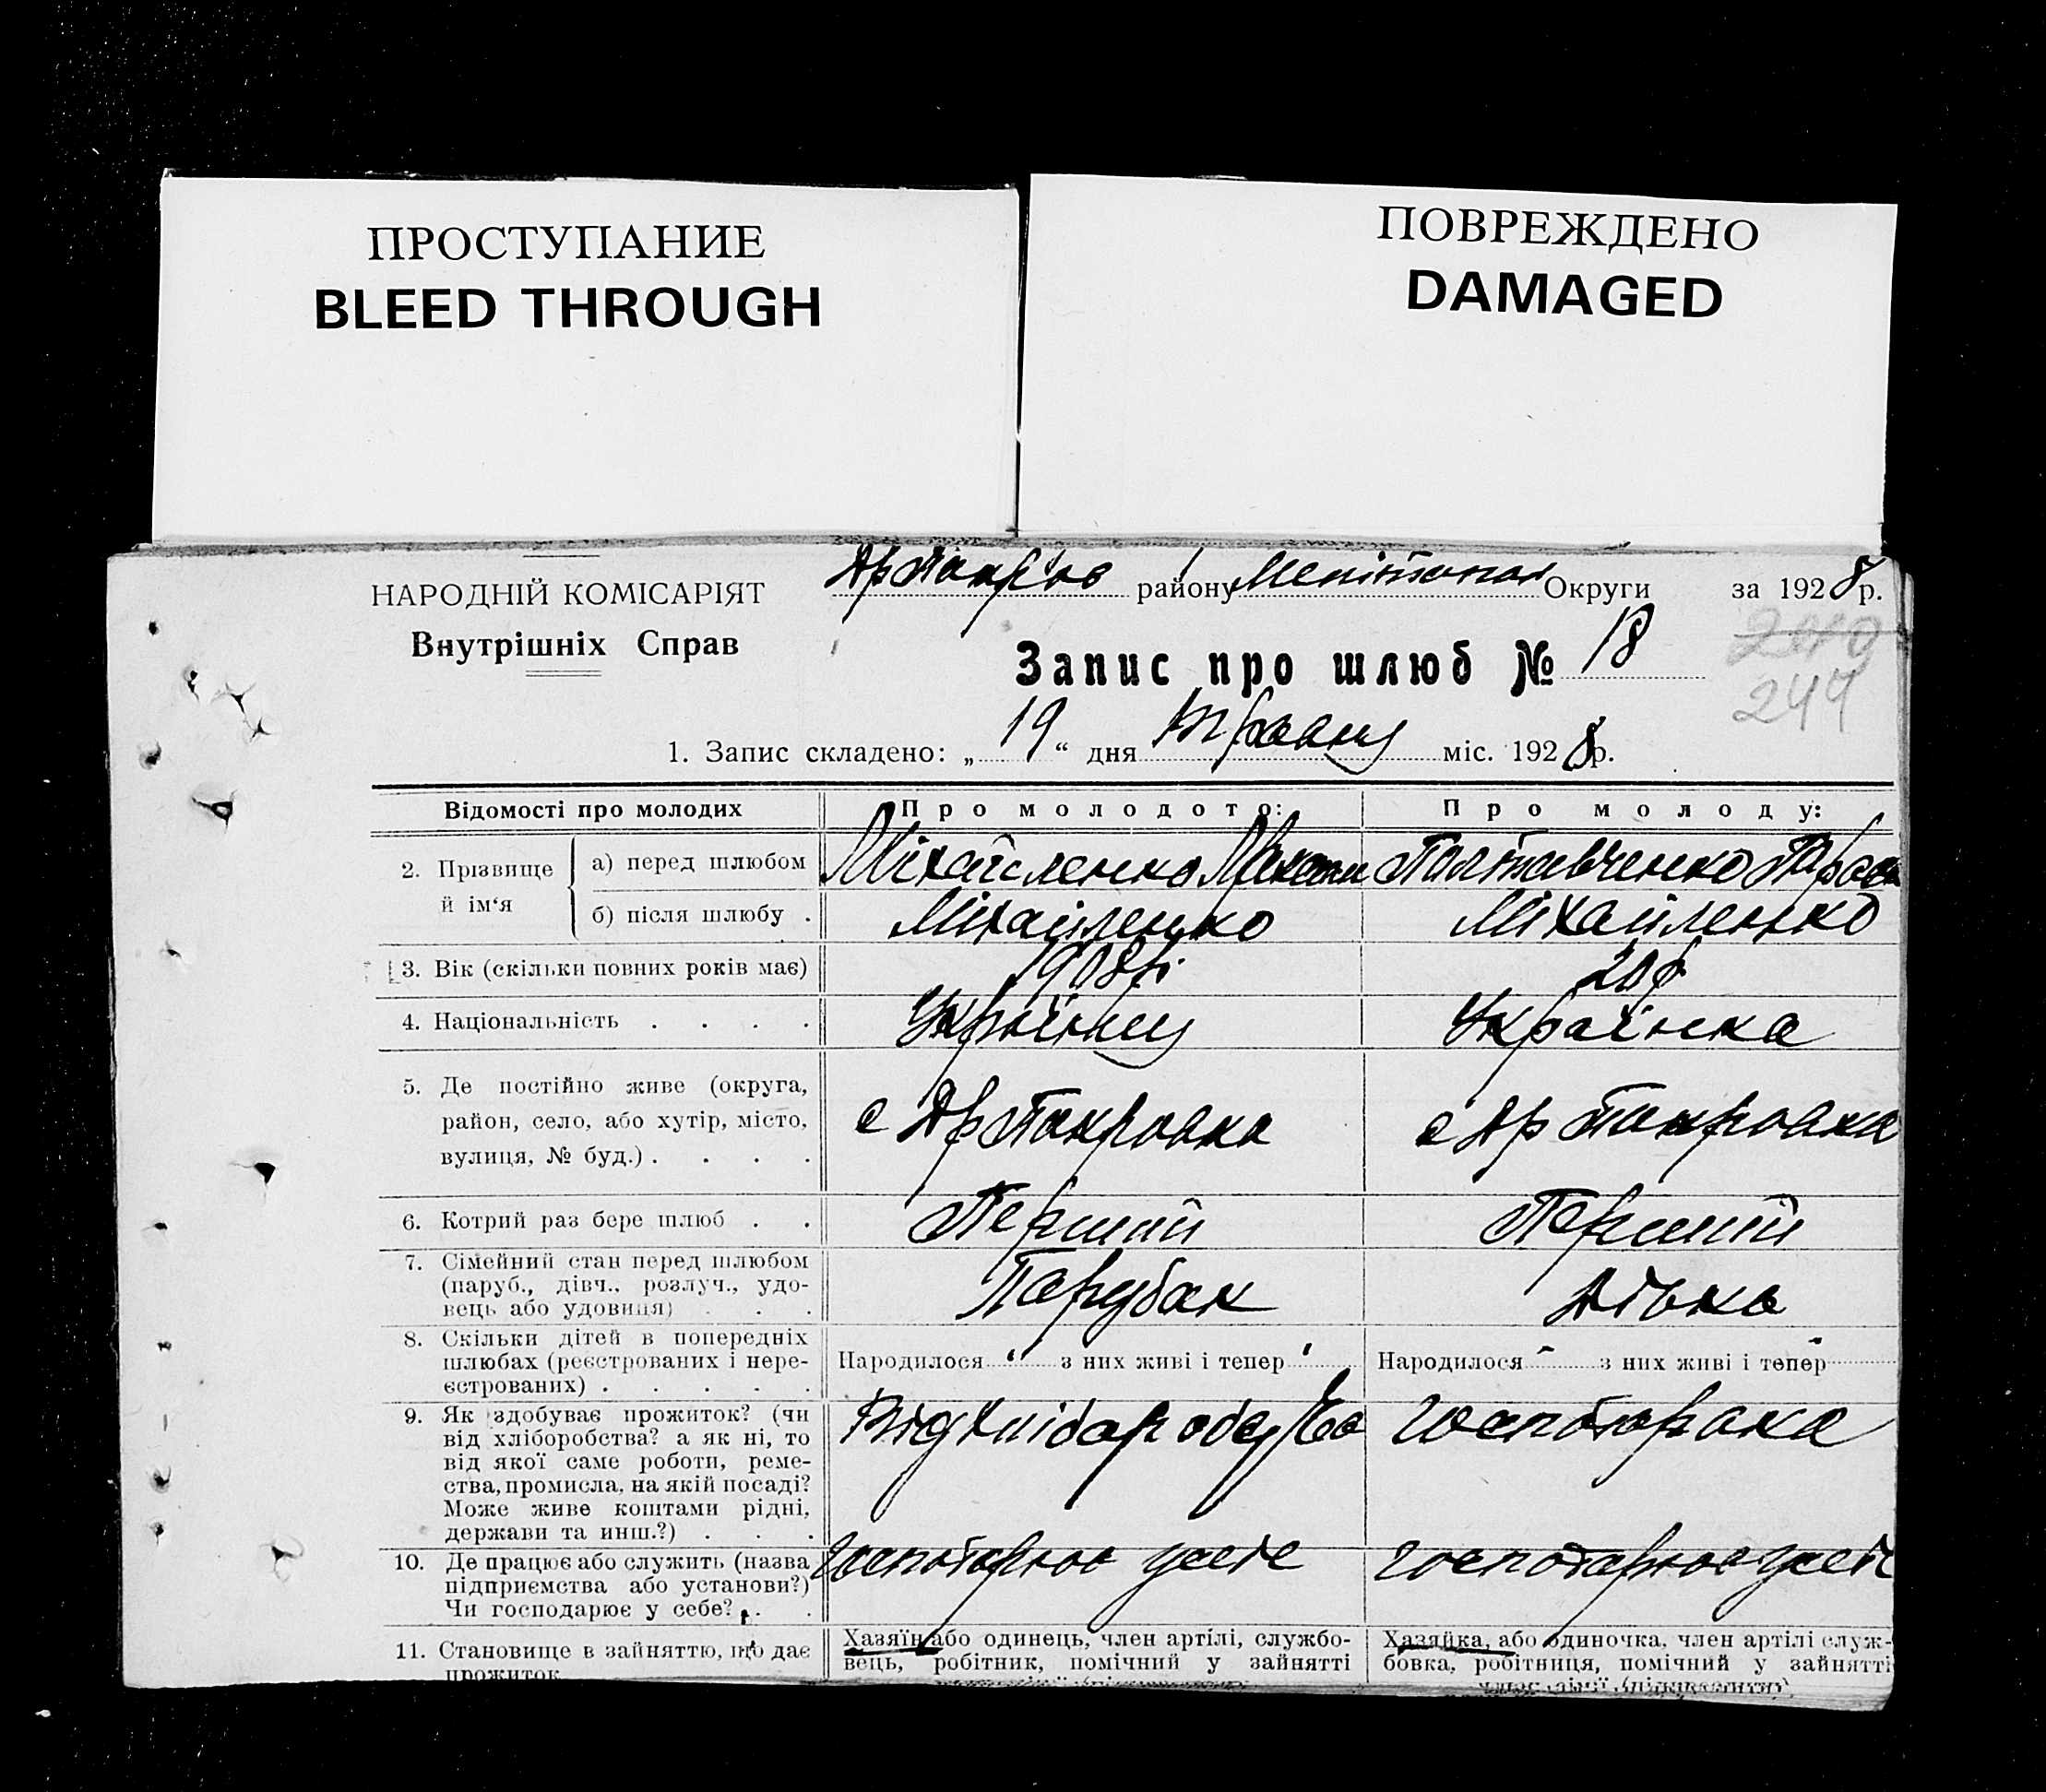 ПРОСТУПАНИЕ
BLEED THROUGH
ПОВРЕЖДЕНО
DAMAGED
НАРОДНІЙ КОМІСАРІЯТ
Внутрішніх Справ
району Округи за 1928 р.
Запис про шлюб № 18
240
244
1. Запис складено: „ 19 “ дня травня міс. 1928 р.
Відомості про молодих
Про молодого:
Про молоду:
2. Прізвище й ім‘я
а) перед шлюбом
Міхайленко
Полтавченко
б) після шлюбу .
Міхайленко
Міхайленко
3. Вік (скільки повних років має)
1908
20 р
4. Національність . . . .
Українец
Українка
5. Де постійно живе (округа,
район, село, або хутір, місто,
вулиця, № буд.) . . . .
с Др Покровка
с Др Покровка
6. Котрий раз бере шлюб . .
Перший
Перший
7. Сімейний стан перед шлюбом
(паруб., дівч., розлуч., удо-
вець або удовиця) . . .
Парубак
Дівка
8. Скільки дітей в попередніх
шлюбах (реєстрованих і нере-
єстрованих) . . . . .
Народилося з них живі і тепер
Народилося - з них живі і тепер -
9. Як здобуває прожиток? (чи
від хліборобства? а як ні, то
від якої саме роботи, реме-
ства, промисла, на якій посаді?
Може живе коштами рідні,
держави та инш.?) . . .
10. Де працює або служить (назва
підприємства або установи?)
Чи господарює у себе? . .
11. Становище в зайняттю, що дає
прожиток
Хазяїн або одинець, член артілі, службо-
вець, робітник, помічний у зайнятті
Хазяйка, або одиночка, член артілі служ-
бовка, робітниця, помічний у зайнятті